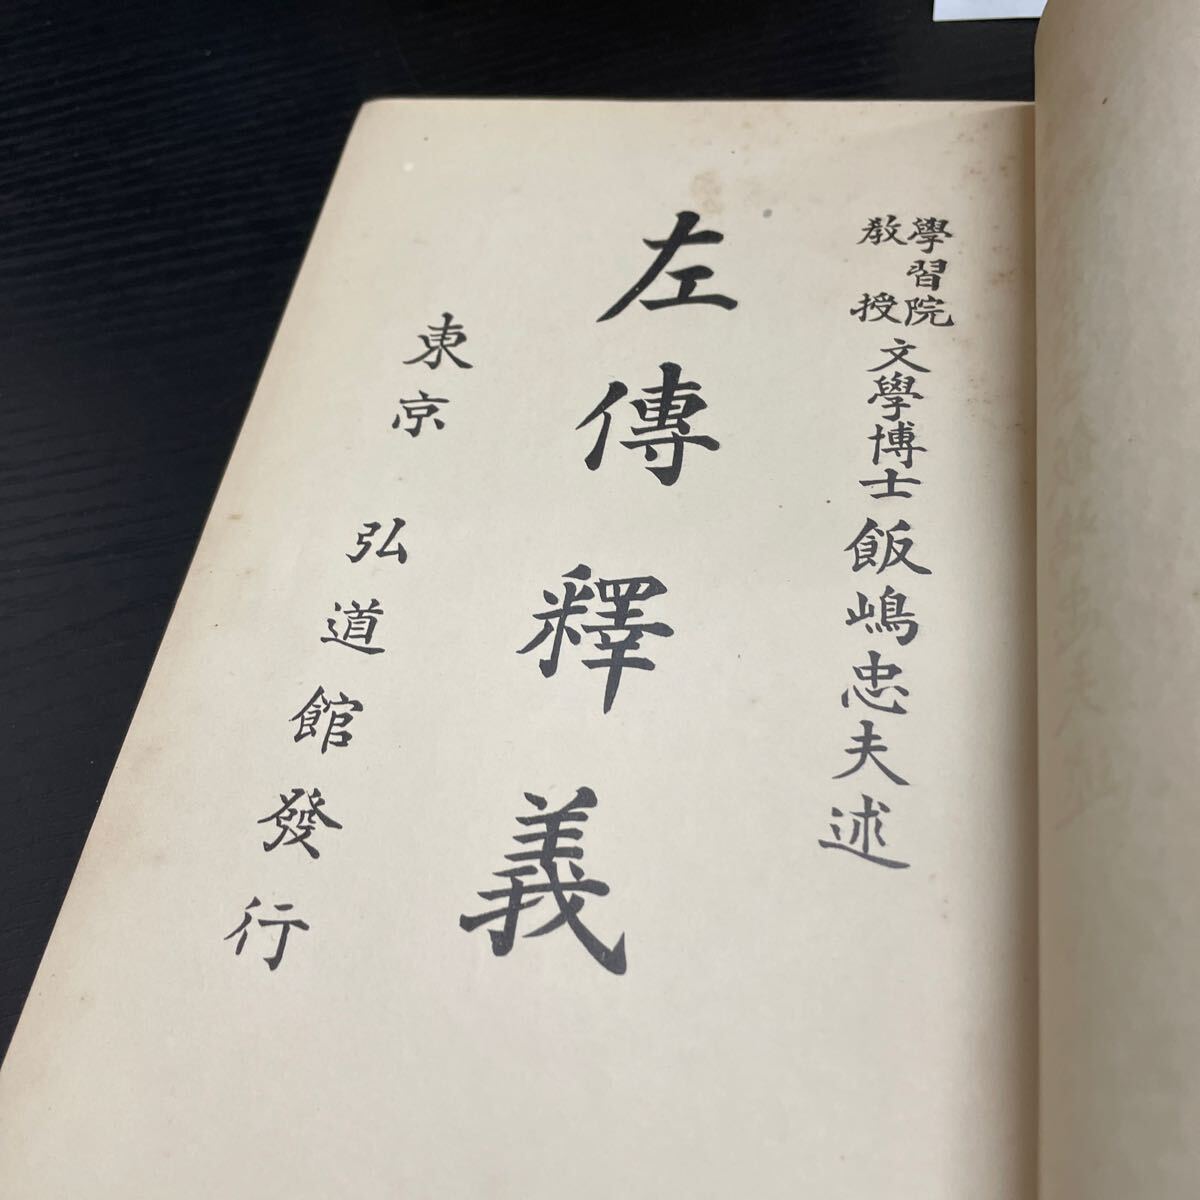 學習院教授 文學博士 飯嶋忠夫述
左傳釋義
東京 弘道館發行